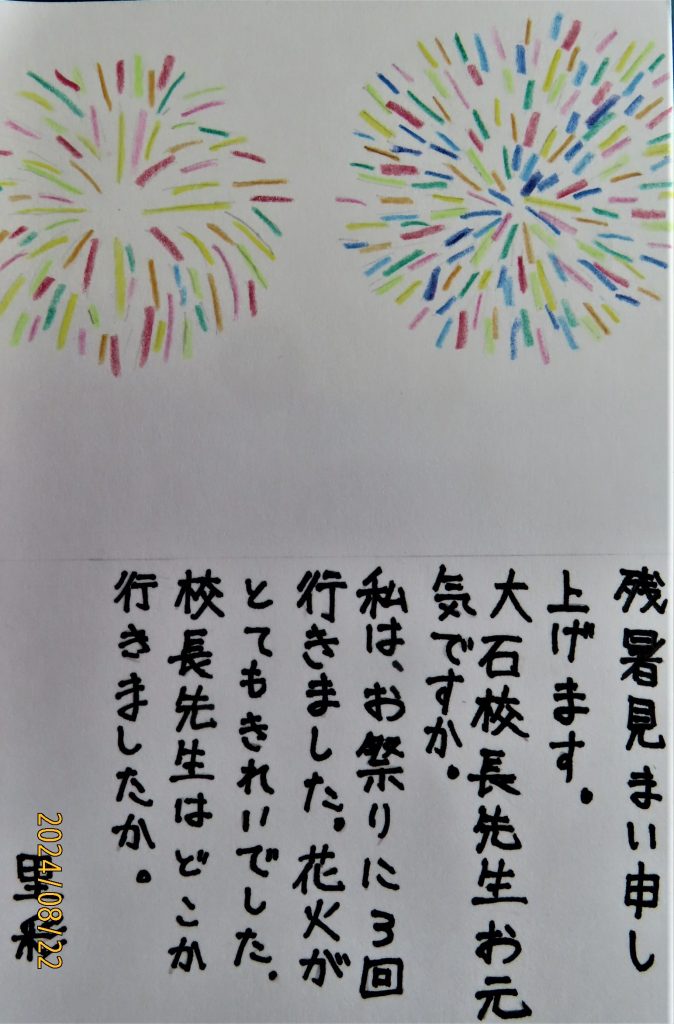 残暑見まい申し
上げます。
大石校長先生お元
気ですか。
私は、お祭りに3回
行きました。花火が
とてもきれいでした。
校長先生はどこか
行きましたか。
里彩
2024/08/22